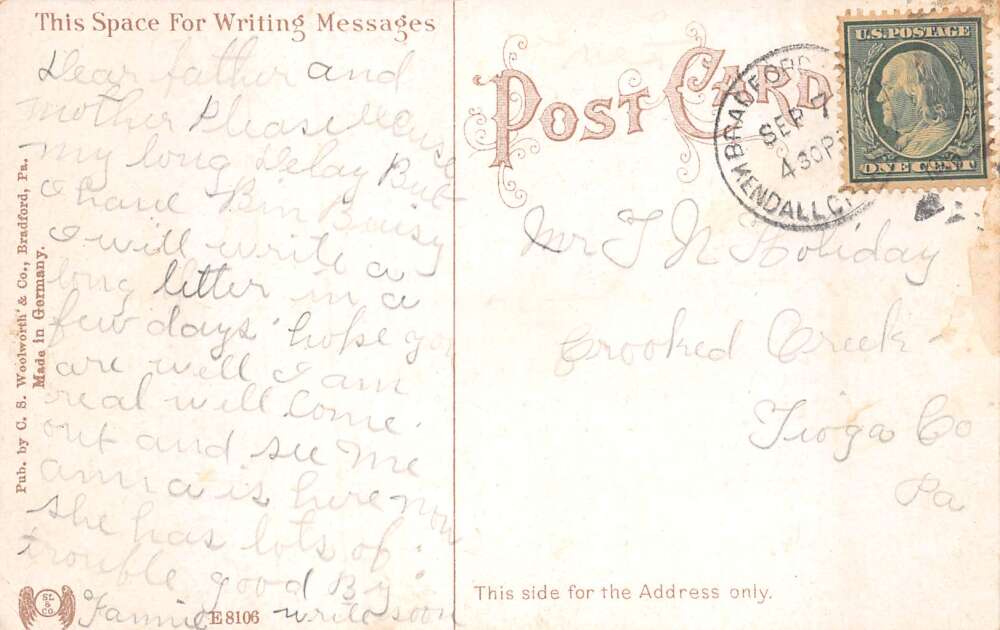 This Space For Writing Messages
Dear father and
mother Please excuse
my long Delay But
I have Bin Buisy
I will write a
long letter in a
few days hope you
are well I am
real well Come
out and see me
anna is here now
She has lots of
trouble good By
Fannie write soon
Pub. by C. S. Woolworth & Co., Bradford, Pa.
Made in Germany.
SL & CO.
E 8106
POST CARD
BRADFORD
SEP 7
4 30P
KENDALL
U.S. POSTAGE
ONE CENT
Mr T N Holiday
Crooked Creek
Tioga Co
Pa
This side for the Address only.